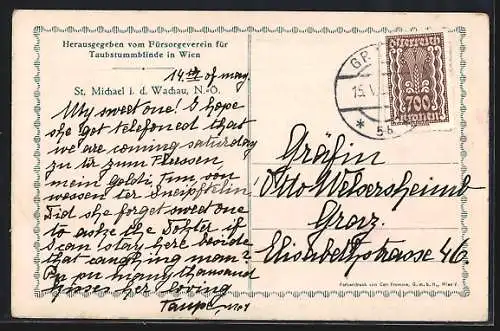 Herausgegeben vom Fürsorgeverein für
Taubstummblinde in Wien
14th of may
St. Michael i. d. Wachau, N.-Ö.
My sweet one! I hope
she got telefoned that
we are coming saturday
zu
mein Goldi, Tim, von
wessen ter
Did she forget sweet one
to aske the Dokter if
I can stay here beside
that caughing man?
many thousand
kisses her loving
Taupe,
GR
15. V.
5a
700
Gräfin
Otto Welsersheimb
Graz.
Elisabethstrasse 46.
Farbendruck von Carl Fromme, G. m. b. H., Wien V.